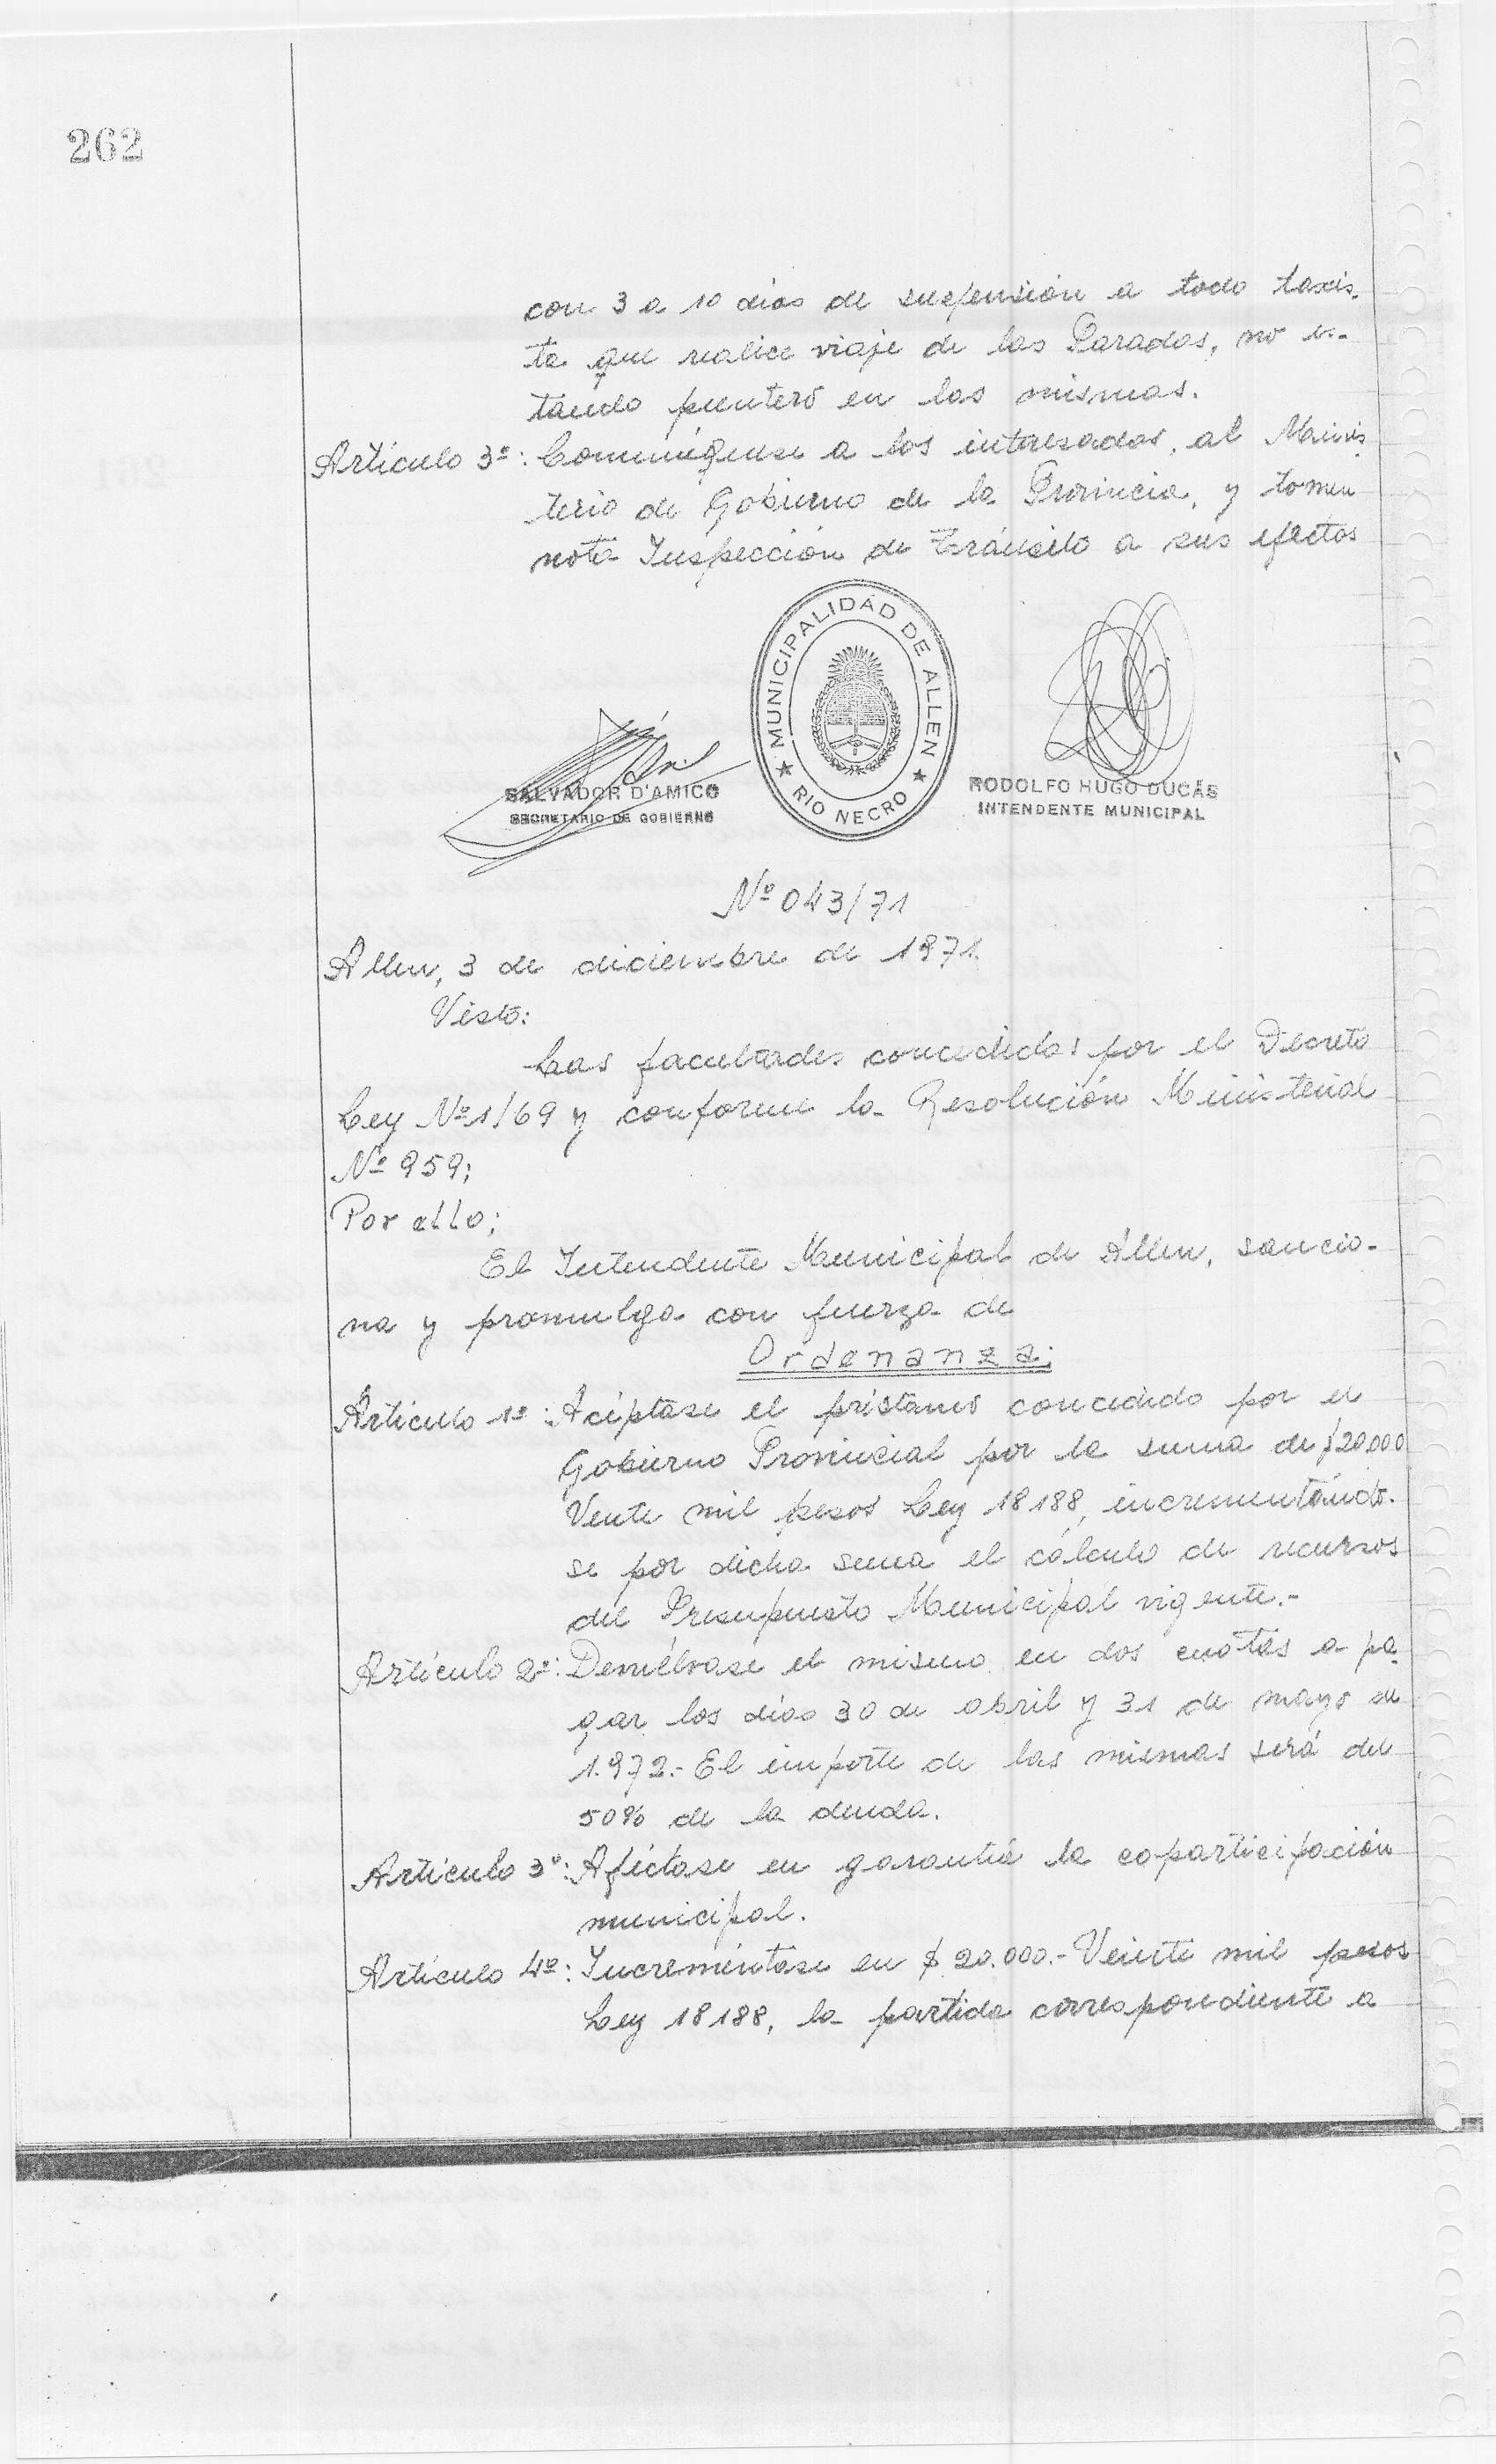 262
con 3 a 10 días de suspensión a todo taxis-
ta que realice viaje de las Paradas, no es-
tando puntero en las mismas.
Artículo 3º: Comuníquese a los interesados, al Minis-
terio de Gobierno de la Provincia, y tomen
nota Inspección de Tránsito a sus efectos
MUNICIPALIDAD DE ALLEN
★ RIO NECRO ★
SALVADOR D'AMICO
SECRETARIO DE GOBIERNO
RODOLFO HUGO DUCÁS
INTENDENTE MUNICIPAL
Nº 043/71
Allen, 3 de diciembre de 1971.
Visto:
Las facultades concedidas por el Decreto
Ley Nº 1/69 y conforme la Resolución Ministerial
Nº 959;
Por ello;
El Intendente Municipal de Allen, sancio-
na y promulga con fuerza de
Ordenanza:
Artículo 1º: Acéptase el préstamo concedido por el
Gobierno Provincial por la suma de $20.000
Vente mil pesos Ley 18188, incrementándo-
se por dicha suma el cálculo de recursos
del Presupuesto Municipal vigente.-
Artículo 2º: Devuélvase el mismo en dos cuotas a pa-
gar los días 30 de abril y 31 de mayo de
1.972.- El importe de las mismas será del
50% de la deuda.
Artículo 3º: Aféctase en garantía la coparticipación
municipal.
Artículo 4º: Increméntase en $ 20.000.- Veinte mil pesos
Ley 18188, la partida correspondiente a